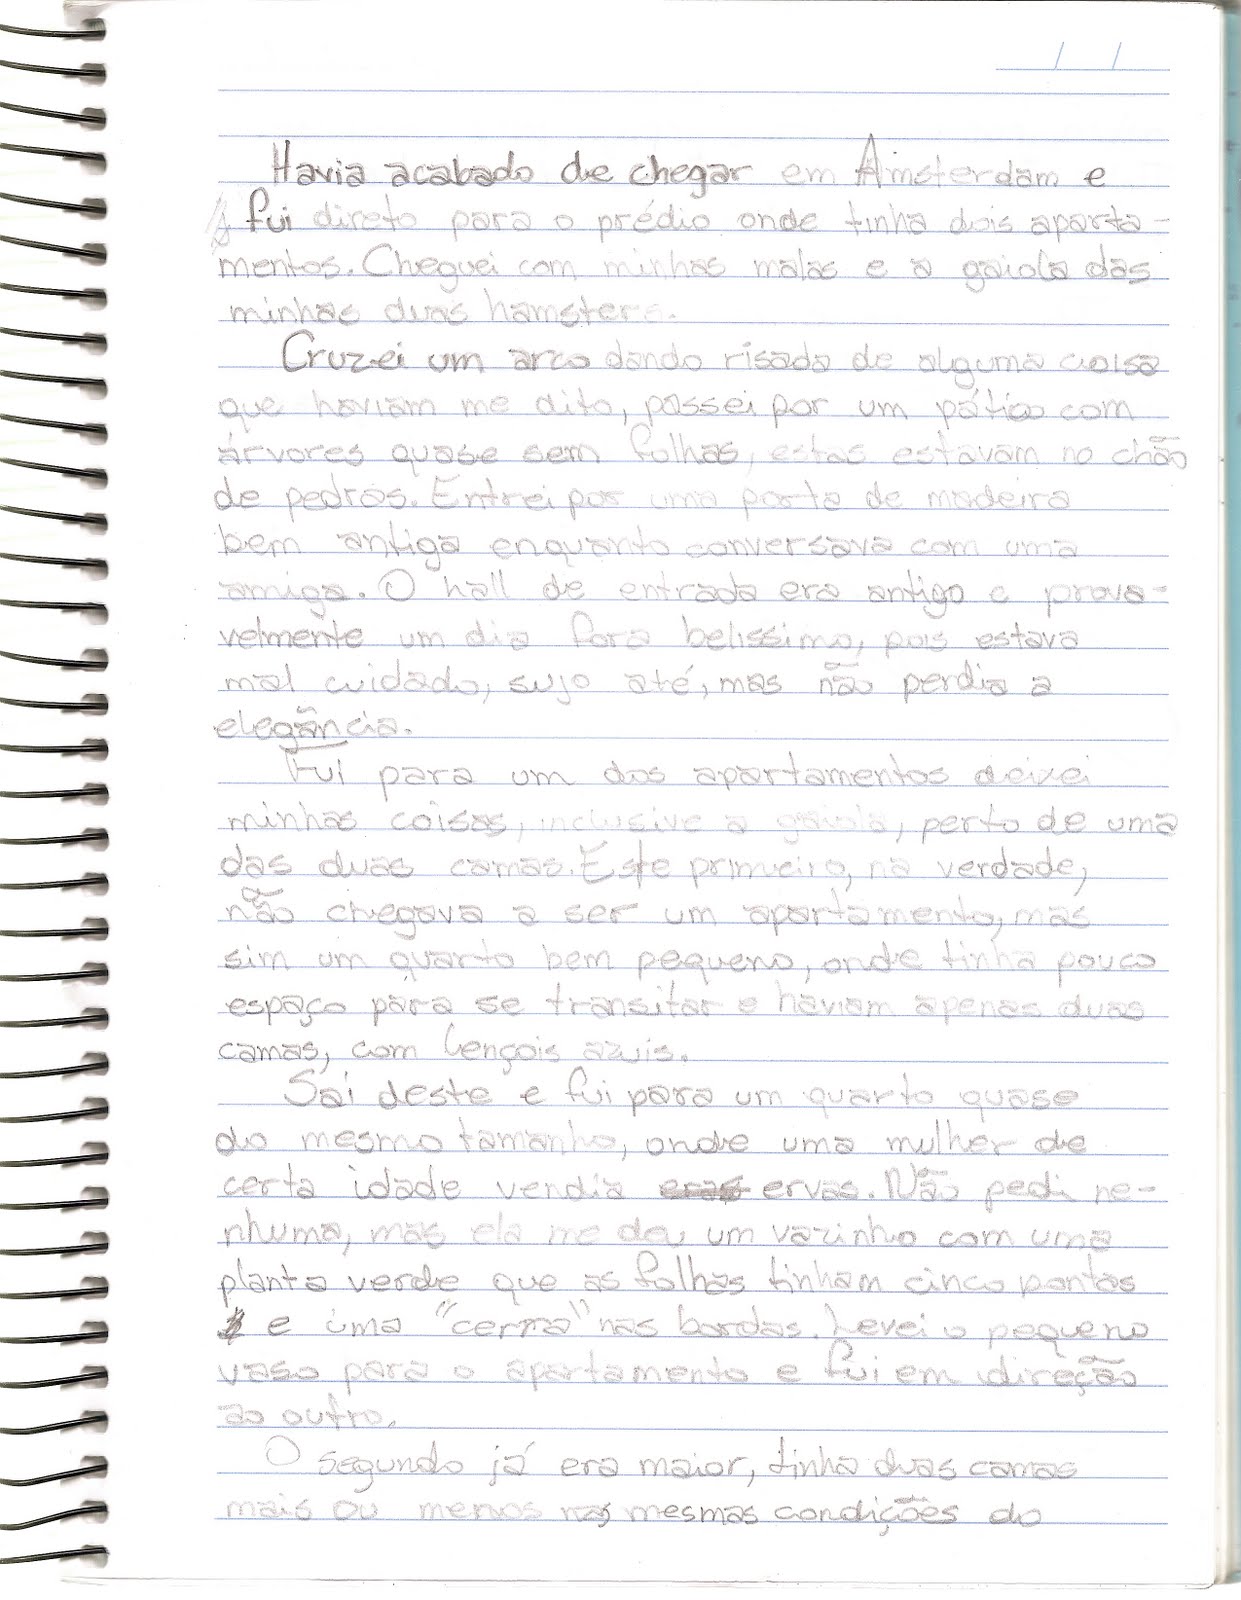 Havia acabado de chegar em Amsterdam e
fui direto para o prédio onde tinha dois aparta-
mentos. Cheguei com minhas malas e a gaiola das
minhas duas hamsters.
Cruzei um arco dando risada de alguma coisa
que haviam me dito, passei por um pátio com
árvores quase sem folhas, estas estavam no chão
de pedras. Entrei por uma porta de madeira
bem antiga enquanto conversava com uma
amiga. O hall de entrada era antigo e prova-
velmente um dia fora belissimo, pois estava
mal cuidado, sujo até, mas não perdia a
elegância.
Fui para um dos apartamentos deixei
minhas coisas, inclusive a gaiola, perto de uma
das duas camas. Este primeiro, na verdade,
não chegava a ser um apartamento, mas
sim um quarto bem pequeno, onde tinha pouco
espaço para se transitar e haviam apenas duas
camas, com lençois azuis.
Saí deste e fui para um quarto quase
do mesmo tamanho, onde uma mulher de
certa idade vendia eras ervas. Não pedi ne-
nhuma, mas ela me deu um vazinho com uma
planta verde que as folhas tinham cinco pontas
e uma "cerra" nas bordas. Levei o pequeno
vaso para o apartamento e fui em direção
ao outro.
O segundo já era maior, tinha duas camas
mais ou menos nas mesmas condições do